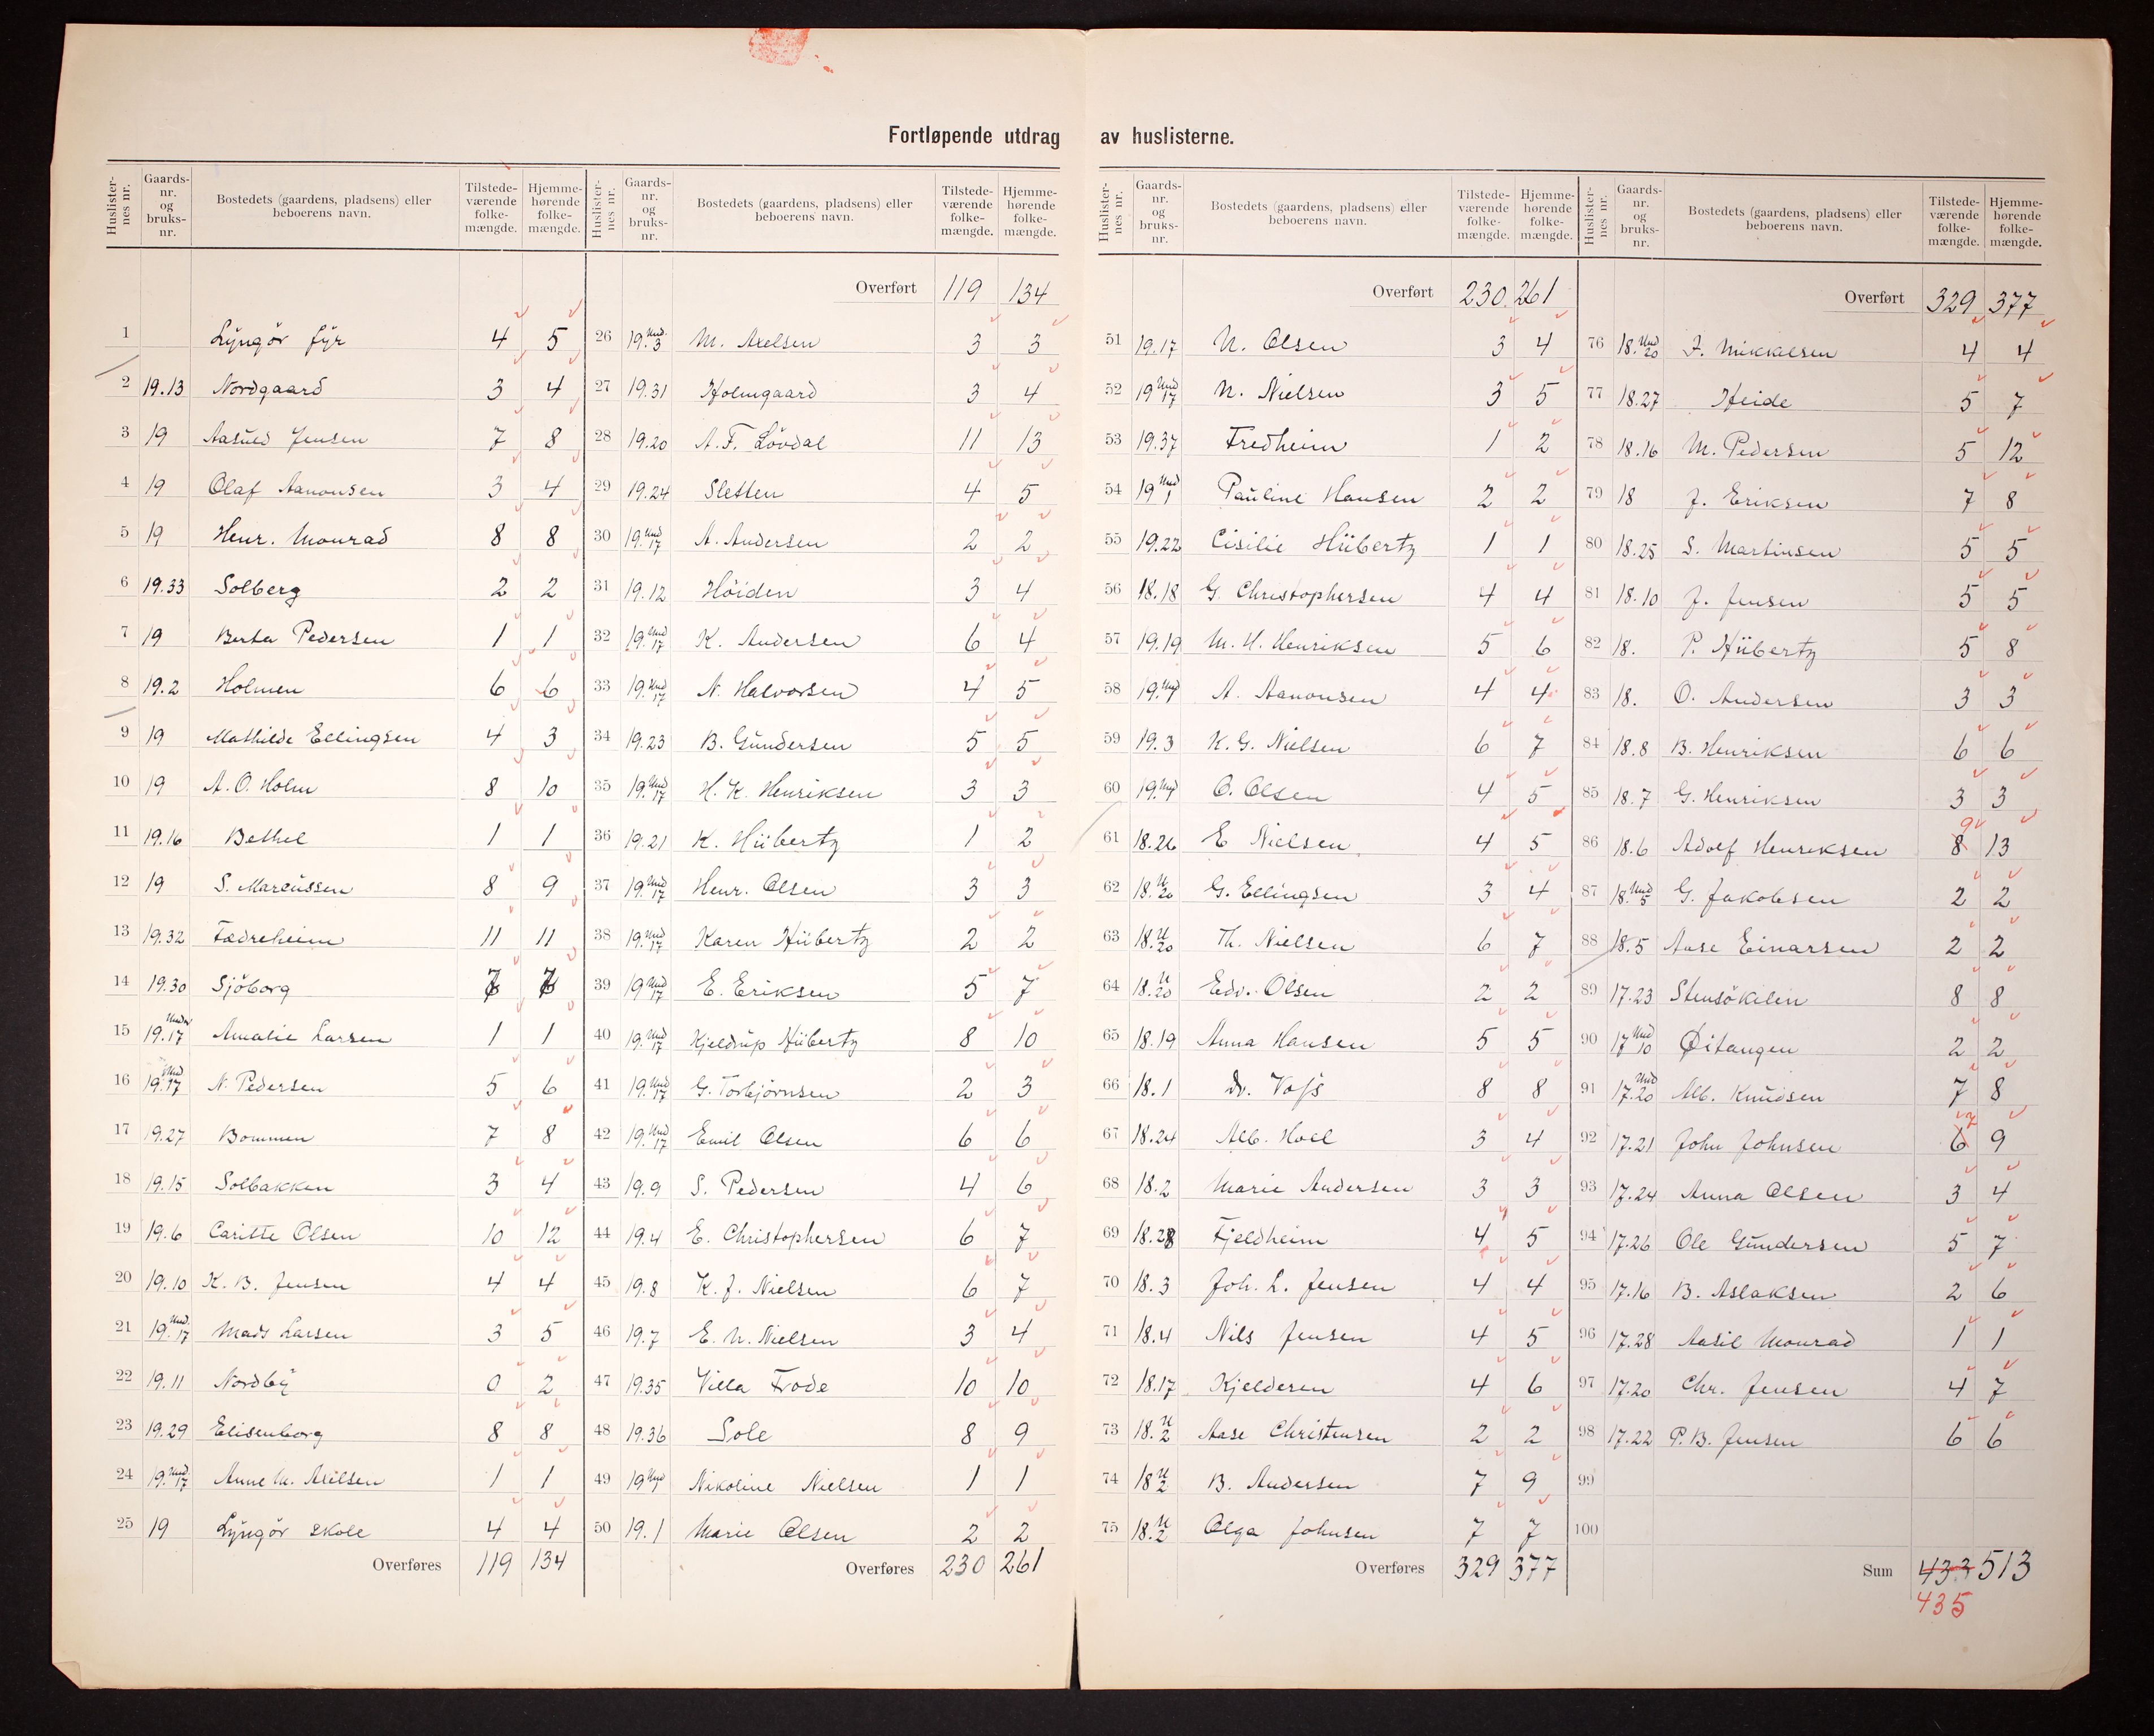 Fortløpende utdrag av huslisterne.
Huslisternes nr. Gaards-nr. og bruks-nr. Bostedets (gaardens, pladsens) eller beboerens navn. Tilstede-værende folke-mængde. Hjemme-hørende folke-mængde.
1 Lyngör fyr 4 5
2 19.13 Nordgaard 3 4
3 19 Aasuld Jensen 7 8
4 19 Olaf Aanonsen 3 4
5 19 Henr. Monrad 8 8
6 19.33 Solberg 2 2
7 19 Berta Pedersen 1 1
8 19.2 Holmen 6 6
9 19 Mathilde Ellingsen 4 3
10 19 A. O. Holm 8 10
11 19.16 Bethel 1 1
12 19 S. Marcussen 8 9
13 19.32 Fædreheim 11 11
14 19.30 Sjöborg 7 7
15 19.Under 17 Amalie Larsen 1 1
16 19.Und 17 N. Pedersen 5 6
17 19.27 Bommen 7 8
18 19.15 Solbakken 3 4
19 19.6 Caritte Olsen 10 12
20 19.10 K. B. Jensen 4 4
21 19.Und. 17 Mads Larsen 3 5
22 19.11 Nordby 0 2
23 19.29 Elisenborg 8 8
24 19.Und. 17 Anne M. Axelsen 1 1
25 19 Lyngör skole 4 4
Overføres 119 134
Huslisternes nr. Gaards-nr. og bruks-nr. Bostedets (gaardens, pladsens) eller beboerens navn. Tilstede-værende folke-mængde. Hjemme-hørende folke-mængde.
Overført 119 134
26 19.Und. 3 M. Axelsen 3 3
27 19.31 Holmgaard 3 4
28 19.20 A. F. Lövdal 11 13
29 19.24 Sletten 4 5
30 19.Und 17 A. Andersen 2 2
31 19.12 Höiden 3 4
32 19.Und 17 K. Andersen 6 4
33 19.Und 17 N. Halvorsen 4 5
34 19.23 B. Gundersen 5 5
35 19.Und 17 H. K. Henriksen 3 3
36 19.21 K. Hübertz 1 2
37 19.Und 17 Henr. Olsen 3 3
38 19.Und 17 Karen Hübertz 2 2
39 19 Und 17 E. Eriksen 5 7
40 19.Und 17 Kjeldrup Hübertz 8 10
41 19.Und 17 G. Torbjörnsen 2 3
42 19.Und 17 Emil Olsen 6 6
43 19.9 S. Pedersen 4 6
44 19.4 E. Christophersen 6 7
45 19.8 K. J. Nielsen 6 7
46 19.7 E. N. Nielsen 3 4
47 19.35 Villa Frode 10 10
48 19.36 Sole 8 9
49 19 Und 1 Nikoline Nielsen 1 1
50 19.1 Marie Olsen 2 2
Overføres 230 261
Huslisternes nr. Gaards-nr. og bruks-nr. Bostedets (gaardens, pladsens) eller beboerens navn. Tilstede-værende folke-mængde. Hjemme-hørende folke-mængde.
Overført 230 261
51 19.17 N. Olsen 3 4
52 19 Und 17 N. Nielsen 3 5
53 19.37 Fredheim 1 2
54 19 Und 1 Pauline Hansen 2 2
55 19.22 Cisilie Hübertz 1 1
56 18.18 G. Christophersen 4 4
57 19.19 M. H. Henriksen 5 6
58 19. A. Aanonsen 4 4
59 19.3 K. G. Nielsen 6 7
60 19. O. Olsen 4 5
61 18.26 E Nielsen 4 5
62 18.U 20 G. Ellingsen 3 4
63 18.U 20 Th. Nielsen 6 7
64 18.U 20 Edv. Olsen 2 2
65 18.19 Anna Hansen 5 5
66 18.1 Dr. Voss 8 8
67 18.24 Alb. Holl 3 4
68 18.2 Marie Andersen 3 3
69 18.28 Fjeldheim 4 5
70 18.3 Joh. L. Jensen 4 4
71 18.4 Nils Jensen 4 5
72 18.17 Kjeldsen 4 6
73 18.U 2 Aase Christensen 2 2
74 18 U 2 B. Andersen 7 9
75 18.U 2 Olga Johnsen 7 7
Overføres 329 377
Huslisternes nr. Gaards-nr. og bruks-nr. Bostedets (gaardens, pladsens) eller beboerens navn. Tilstede-værende folke-mængde. Hjemme-hørende folke-mængde.
Overført 329 377
76 18.Und 20 J. Mikkelsen 4 4
77 18.27 Heide 5 7
78 18.16 M. Pedersen 5 12
79 18 J. Eriksen 7 8
80 18.25 S. Martinsen 5 5
81 18.10 J. Jensen 5 5
82 18. P. Hübertz 5 8
83 18. O. Andersen 3 3
84 18.8 B. Henriksen 6 6
85 18.7 G. Henriksen 3 3
86 18.6 Adolf Henriksen 8 9 13
87 18.Und 5 G. Jakobsen 2 2
88 18.5 Aase Einarsen 2 2
89 17.23 Stensökilen 8 8
90 17 Und 10 Öitangen 2 2
91 17.Und 20 Alb. Knudsen 7 8
92 17.21 John Johnsen 6 7 9
93 17.24 Anna Olsen 3 4
94 17.26 Ole Gundersen 5 7
95 17.16 B. Aslaksen 2 6
96 17.28 Aasil Monrad 1 1
97 17.20 Chr. Jensen 4 7
98 17.22 P. B. Jensen 6 6
99
100
Sum 433 513
435